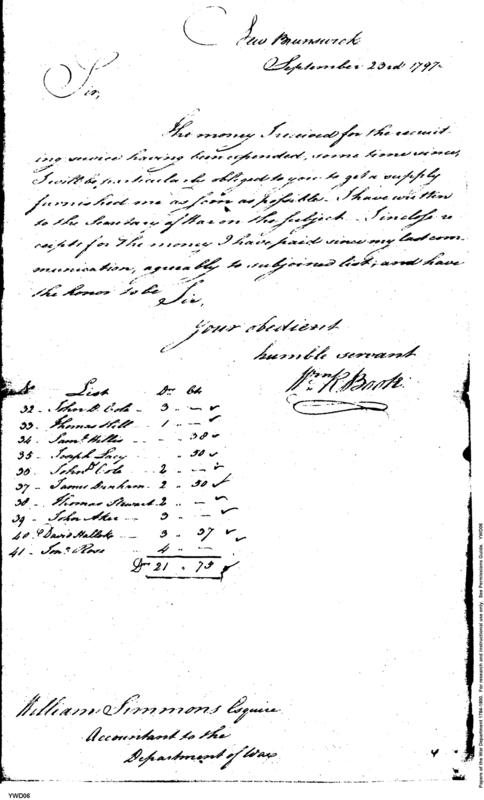 New Brunswick
September 23rd 1797.
Sir,
The money I received for the recruit-
ing service having been expended, some time since,
I will be particularly obliged to you to get a supply
furnished me as soon as possible. I have written
to the Secretary of War on the subject. I inclose re
ceipts for the money I have paid since my last com-
munication, agreeably to subjoined list; and have
the honor to be Sir,
Your obedient
humble servant
Wm. R. Boote
No. List Drs Cts
32 - John D. Cole - 3 - — ✓
33 - Thomas Hill 1 - — ✓
34 - Saml. Hillis - - 38 ✓
35 - Joseph Lacy - 50 ✓
36 - John D. Cole - 2 - — ✓
37 - James Dunham - 2 - 50 ✓
38 - Thomas Stewart - 2 - — ✓
39 - John Aker - 3 - — ✓
40 - David Hallok - 3 - 37 ✓
41 - Jno. Ross 4 - —
Drs 21 - 75 ✓
William Simmons Esquire
Accountant to the
Department of War
4
YWD06
Papers of the War Department 1784-1800. For research and instructional use only. See Permissions Guide. YWD06